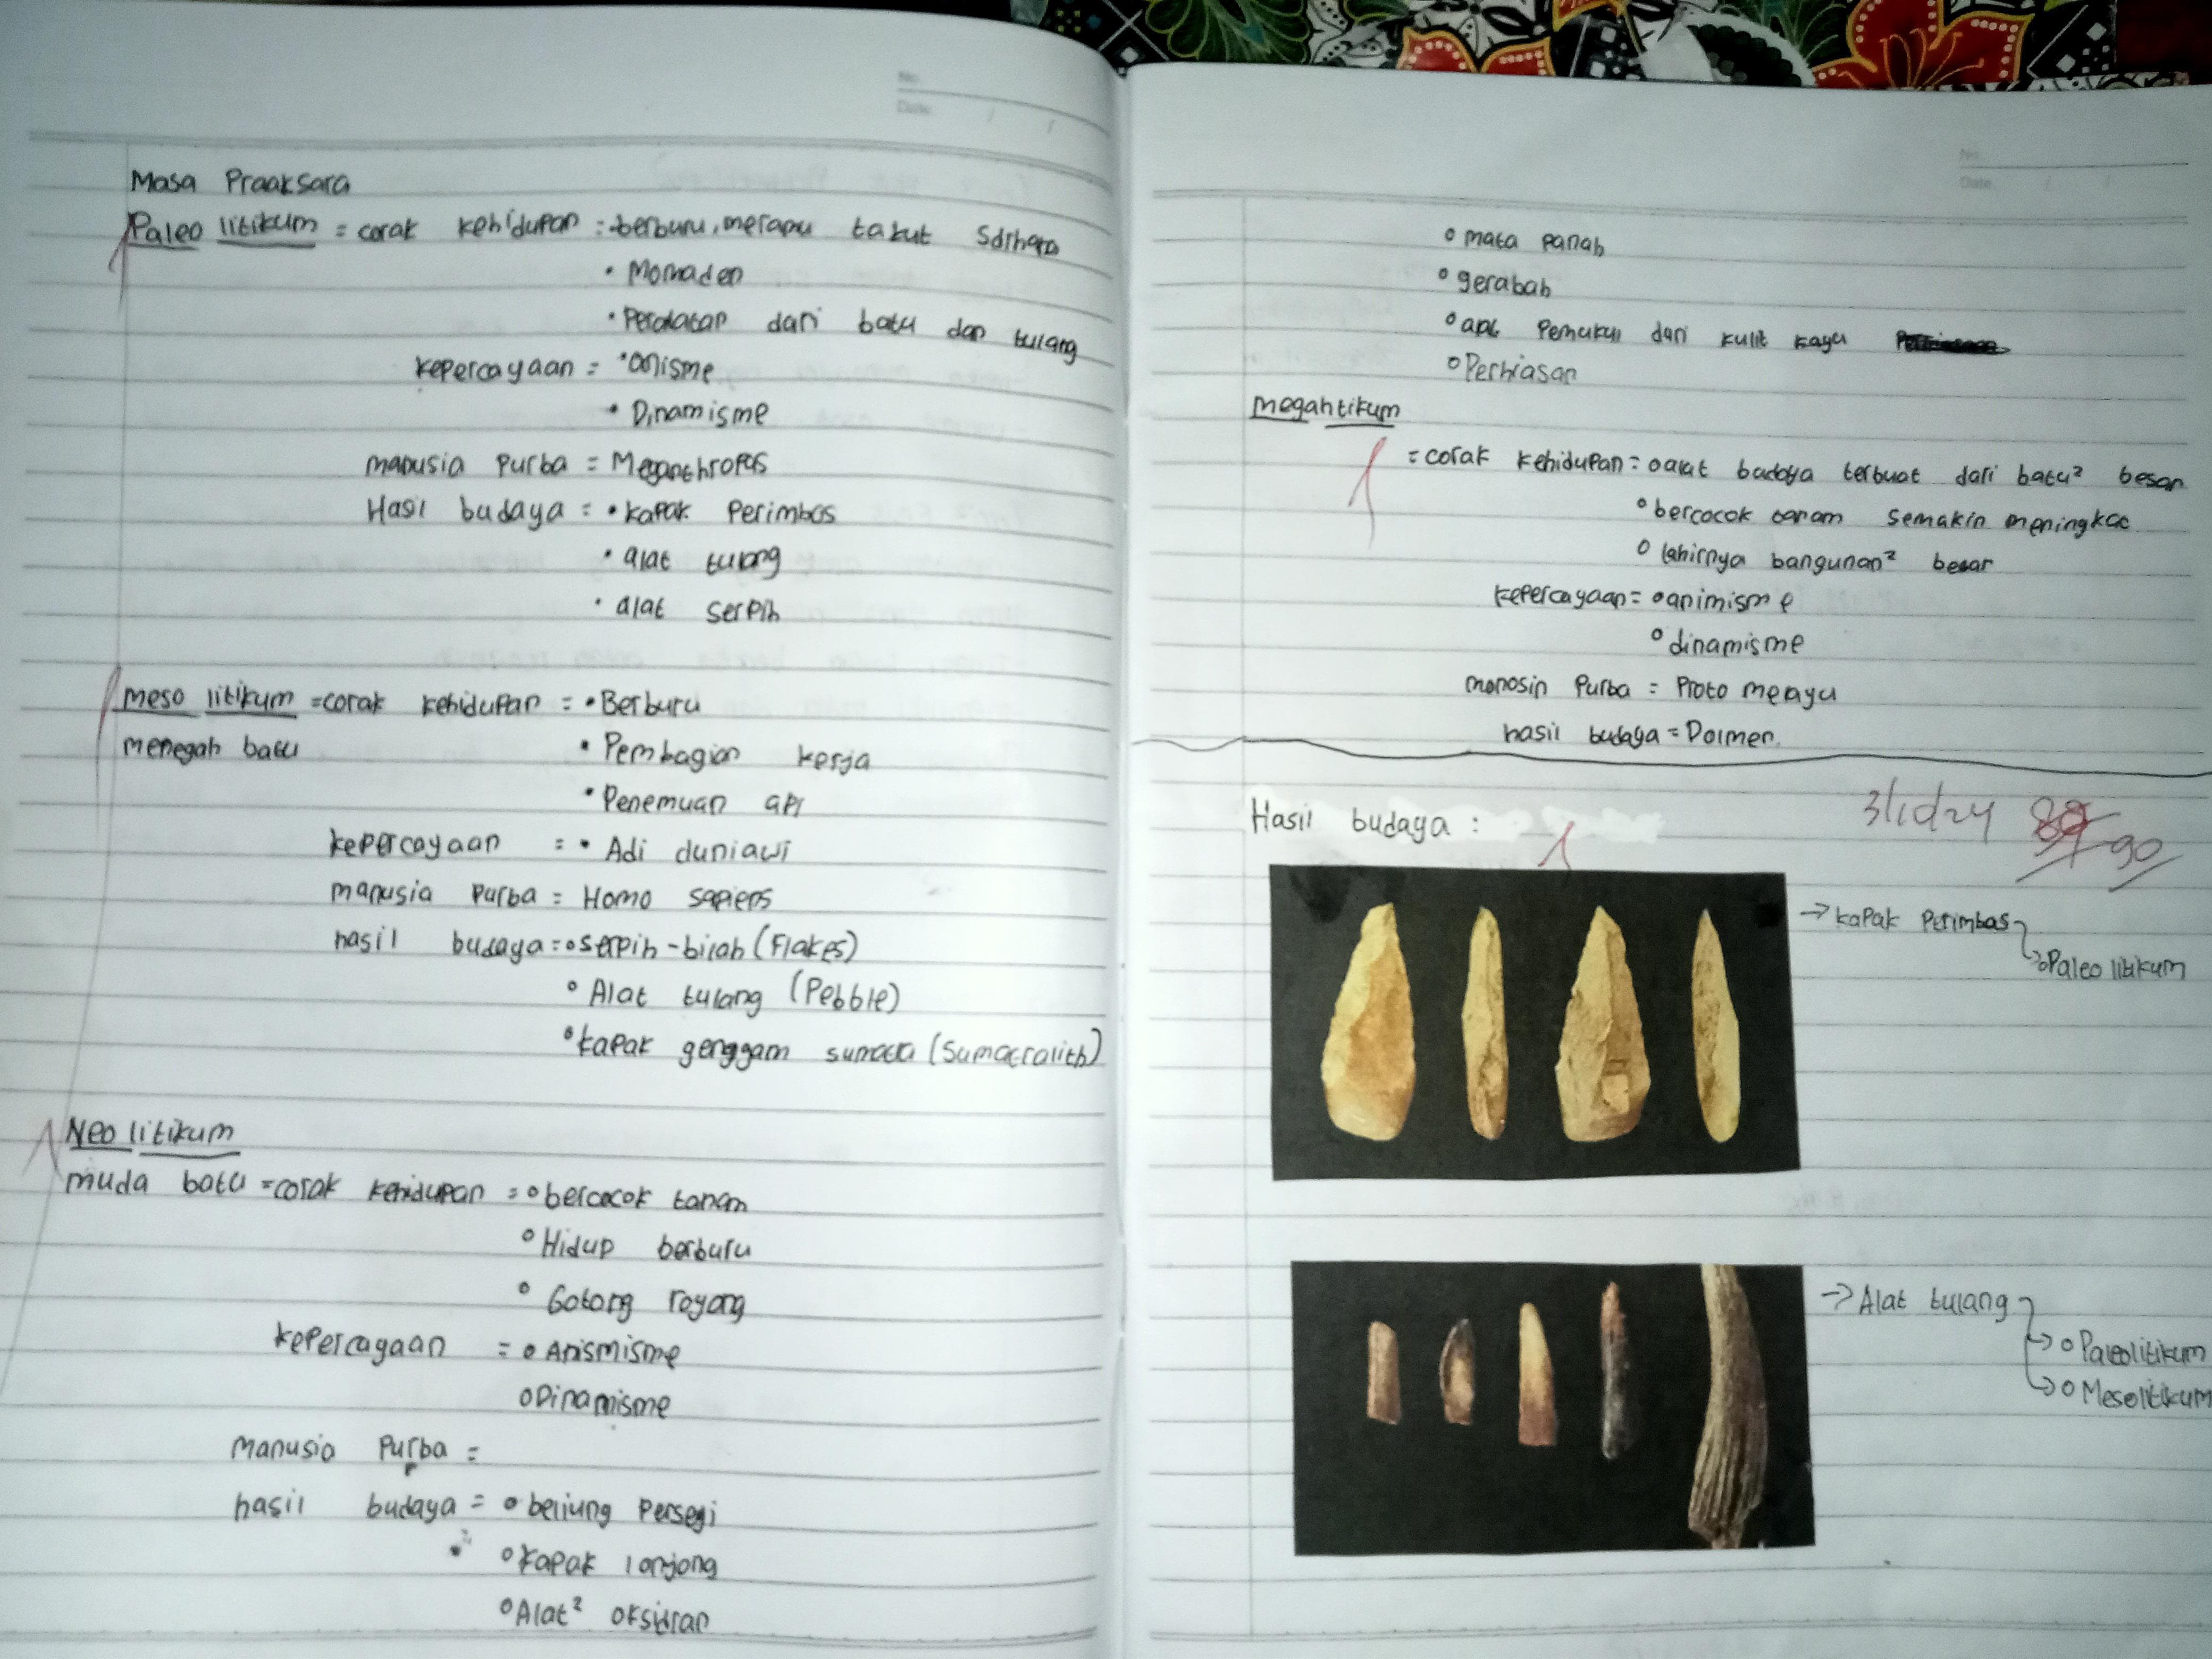 No.
Date / /
Masa Praaksara
Paleo litikum = corak kehidupan : berburu, meramu takut
• Momaden
• Peralatan dari batu dan tulang
kepercayaan = • anisme
• Dinamisme
manusia purba = Meganthropus
Hasil budaya = • kapak Perimbas
• alat tulang
• alat serpih
meso litikum = corak kehidupan = • Berburu
menegah batu • Pembagian kerja
• Penemuan api
kepercayaan = • Adi duniawi
manusia purba = Homo sapiens
hasil budaya = o serpih - bilah (Flakes)
o Alat tulang (Pebble)
o kapak genggam sumatra (Sumatralith)
Neo litikum
muda batu = corak kehidupan = o bercocok tanam
o Hidup berburu
o Gotong royong
kepercayaan = o Anismisme
o Dinamisme
Manusia Purba =
hasil budaya = o beliung Persegi
o Kapak lonjong
o Alat² oksidran
No.
Date / /
o mata panah
o gerabah
o Pemukul dari kulit kayu
o Perhiasan
megahtikum
= corak kehidupan = o alat budaya terbuat dari batu² besar
o bercocok tanam semakin meningkat
o lahirnya bangunan² besar
kepercayaan = o animisme
o dinamisme
Purba = Proto melayu
hasil budaya = Dolmen.
Hasil budaya :
3/10/24 89 90
→ kapak Perimbas
→ Paleo litikum
→ Alat tulang
→ o Paleolitikum
→ o Mesolitikum